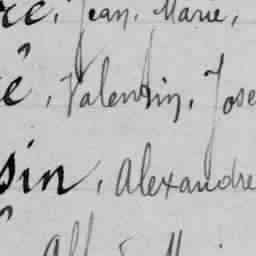 re, Jean, Marie,
é, Valentin, Jose
sin, Alexandre